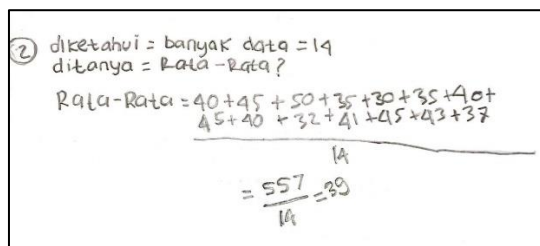 2 diketahui = banyak data = 14
ditanya = Rata-Rata?
Rata-Rata = 40+45+50+35+30+35+40+
45+40+32+41+45+43+37
14
= 557
14
= 39